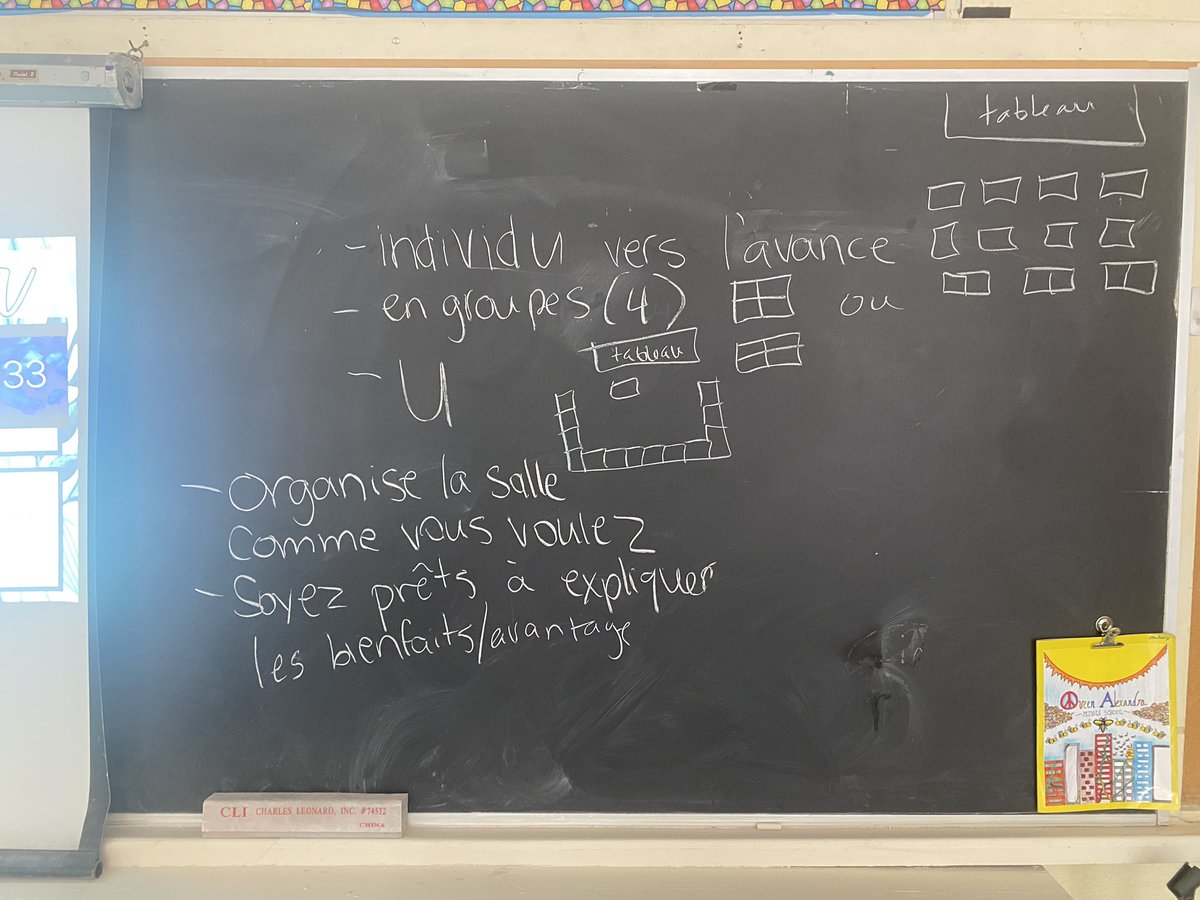 tableau
- individu vers l'avance
- en groupes (4) ou
tableau
- U
- Organise la salle
comme vous voulez
- Soyez prêts à expliquer
les bienfaits/avantage
33
CLI CHARLES LEONARD, INC. #74512
CHINA
Queen Alexandra
MIDDLE SCHOOL